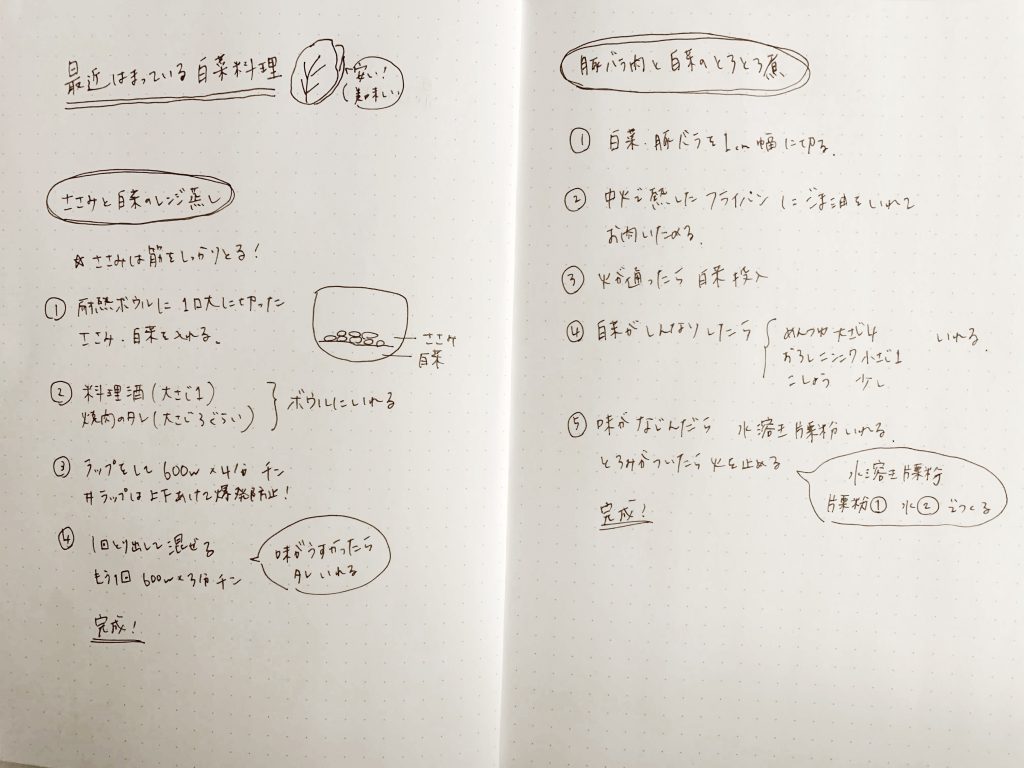 最近はまっている白菜料理
安い!
美味しい
ささみと白菜のレンジ蒸し
☆ささみは筋をしっかりとる!
① 耐熱ボウルに 1口大に切った
ささみ・白菜を入れる。
ささみ
白菜
② 料理酒(大さじ1)
焼肉のタレ(大さじ3ぐらい)
ボウルにいれる
③ ラップをして 600w×4分 チン
#ラップは上下あけて爆発防止!
④ 1回とり出して混ぜる
もう1回 600w×3分 チン
味がうすかったら
タレいれる
完成!
豚バラ肉と白菜のとろとろ煮
① 白菜・豚バラを1cm幅に切る。
② 中火で熱したフライパンにごま油をいれて
お肉いためる。
③ 火が通ったら 白菜投入
④ 白菜がしんなりしたら
めんつゆ 大さじ4
おろしニンニク 小さじ1
こしょう 少し
いれる。
⑤ 味がなじんだら 水溶き片栗粉いれる。
とろみがついたら 火を止める
水溶き片栗粉
片栗粉① 水② でつくる
完成!